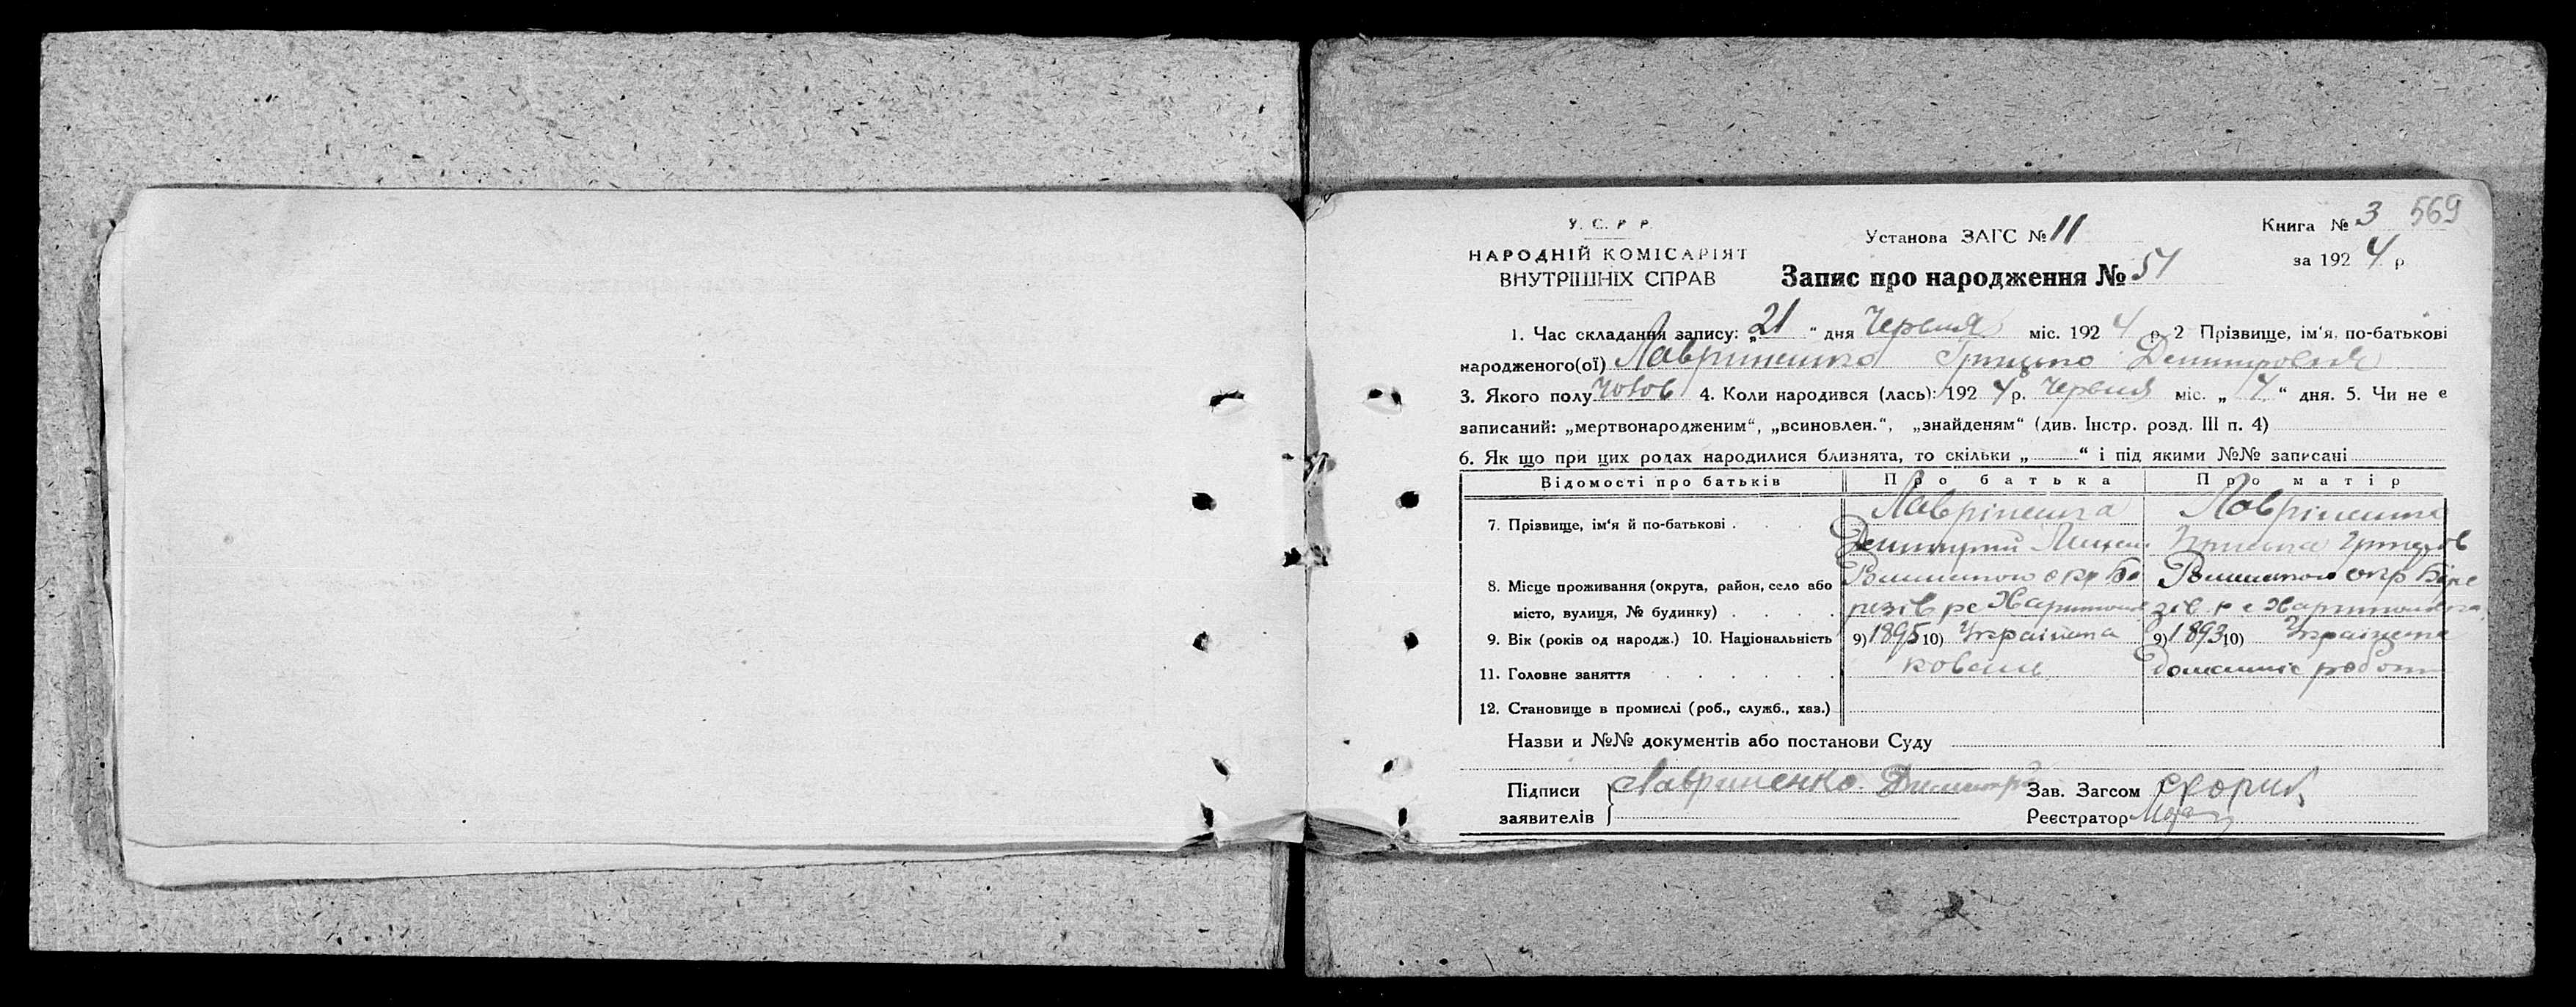 У. С. Р. Р.
НАРОДНІЙ КОМІСАРІЯТ
ВНУТРІШНІХ СПРАВ
Установа ЗАГС № 11
Запис про народження № 51
Книга № 3 569
за 1924 р
1. Час складання запису: „21“ дня Червня міс. 1924 р. 2 Прізвище, ім‘я, по-батькові
народженого(ої) Лавриненко Грицько
3. Якого полу чолов 4. Коли народився (лась): 1924 р. Червня міс. „4“ дня. 5. Чи не є
записаний: „мертвонародженим“, „всиновлен.“, „знайденям“ (див. Інстр. розд. III п. 4)
6. Як що при цих родах народилися близнята, то скільки „ “ і під якими №№ записані
Відомості про батьків Про батька Про матір
7. Прізвище, ім‘я й по-батькові . Лавріненко Лавріненко
8. Місце проживання (округа, район, село або
місто, вулиця, № будинку)
9. Вік (років од народж.) 10. Національність 9) 1895 10) Українець 9) 1893 10) Українка
11. Головне заняття коваль Домашнє робот
12. Становище в промислі (роб., служб., хаз.)
Назви и №№ документів або постанови Суду
Підписи Лавриненко Зав. Загсом Скорик
заявителів Реєстратор